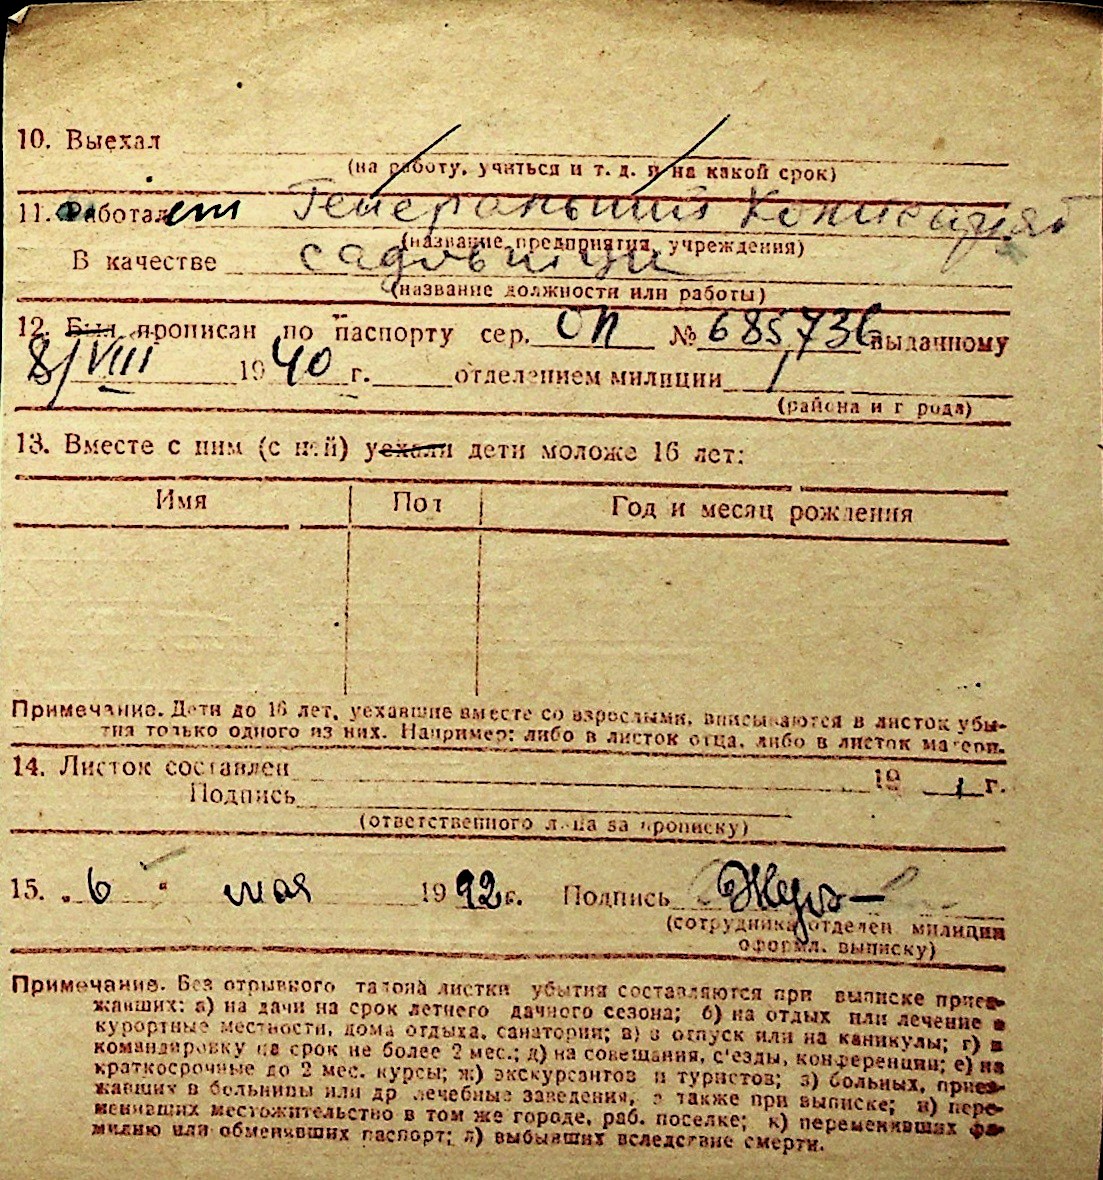 10. Выехал
(на работу, учиться и т. д. и на какой срок)
11. Работает Генеральный Комисариат
(название предприятия, учреждения)
В качестве садовници
(название должности или работы)
12. Был прописан по паспорту сер. ОП № 685736 выданному
8/VIII 1940 г. отделением милиции
(района и города)
13. Вместе с ним (с ней) уехали дети моложе 16 лет:
Имя Пол Год и месяц рождения
Примечание. Дети до 16 лет, уехавшие вместе со взрослыми, вписываются в листок убы-
тия только одного из них. Например: либо в листок отца, либо в листок матери.
14. Листок составлен 19 г.
Подпись
(ответственного лица за прописку)
15. „6“ мая 1942 г. Подпись
(сотрудника отделен. милиции
оформл. выписку)
Примечание. Без отрывного талона листки убытия составляются при выписке приез-
жавших: а) на дачи на срок летнего дачного сезона; б) на отдых или лечение в
курортные местности, дома отдыха, санатории; в) в отпуск или на каникулы; г) в
командировку на срок не более 2 мес.; д) на совещания, с'езды, конференции; е) на
краткосрочные до 2 мес. курсы; ж) экскурсантов и туристов; з) больных, приез-
жавших в больницы или др лечебные заведения, а также при выписке; и) пере-
менивших местожительство в том же городе, раб. поселке; к) переменивших фа-
милию или обменявших паспорт; л) выбывших вследствие смерти.